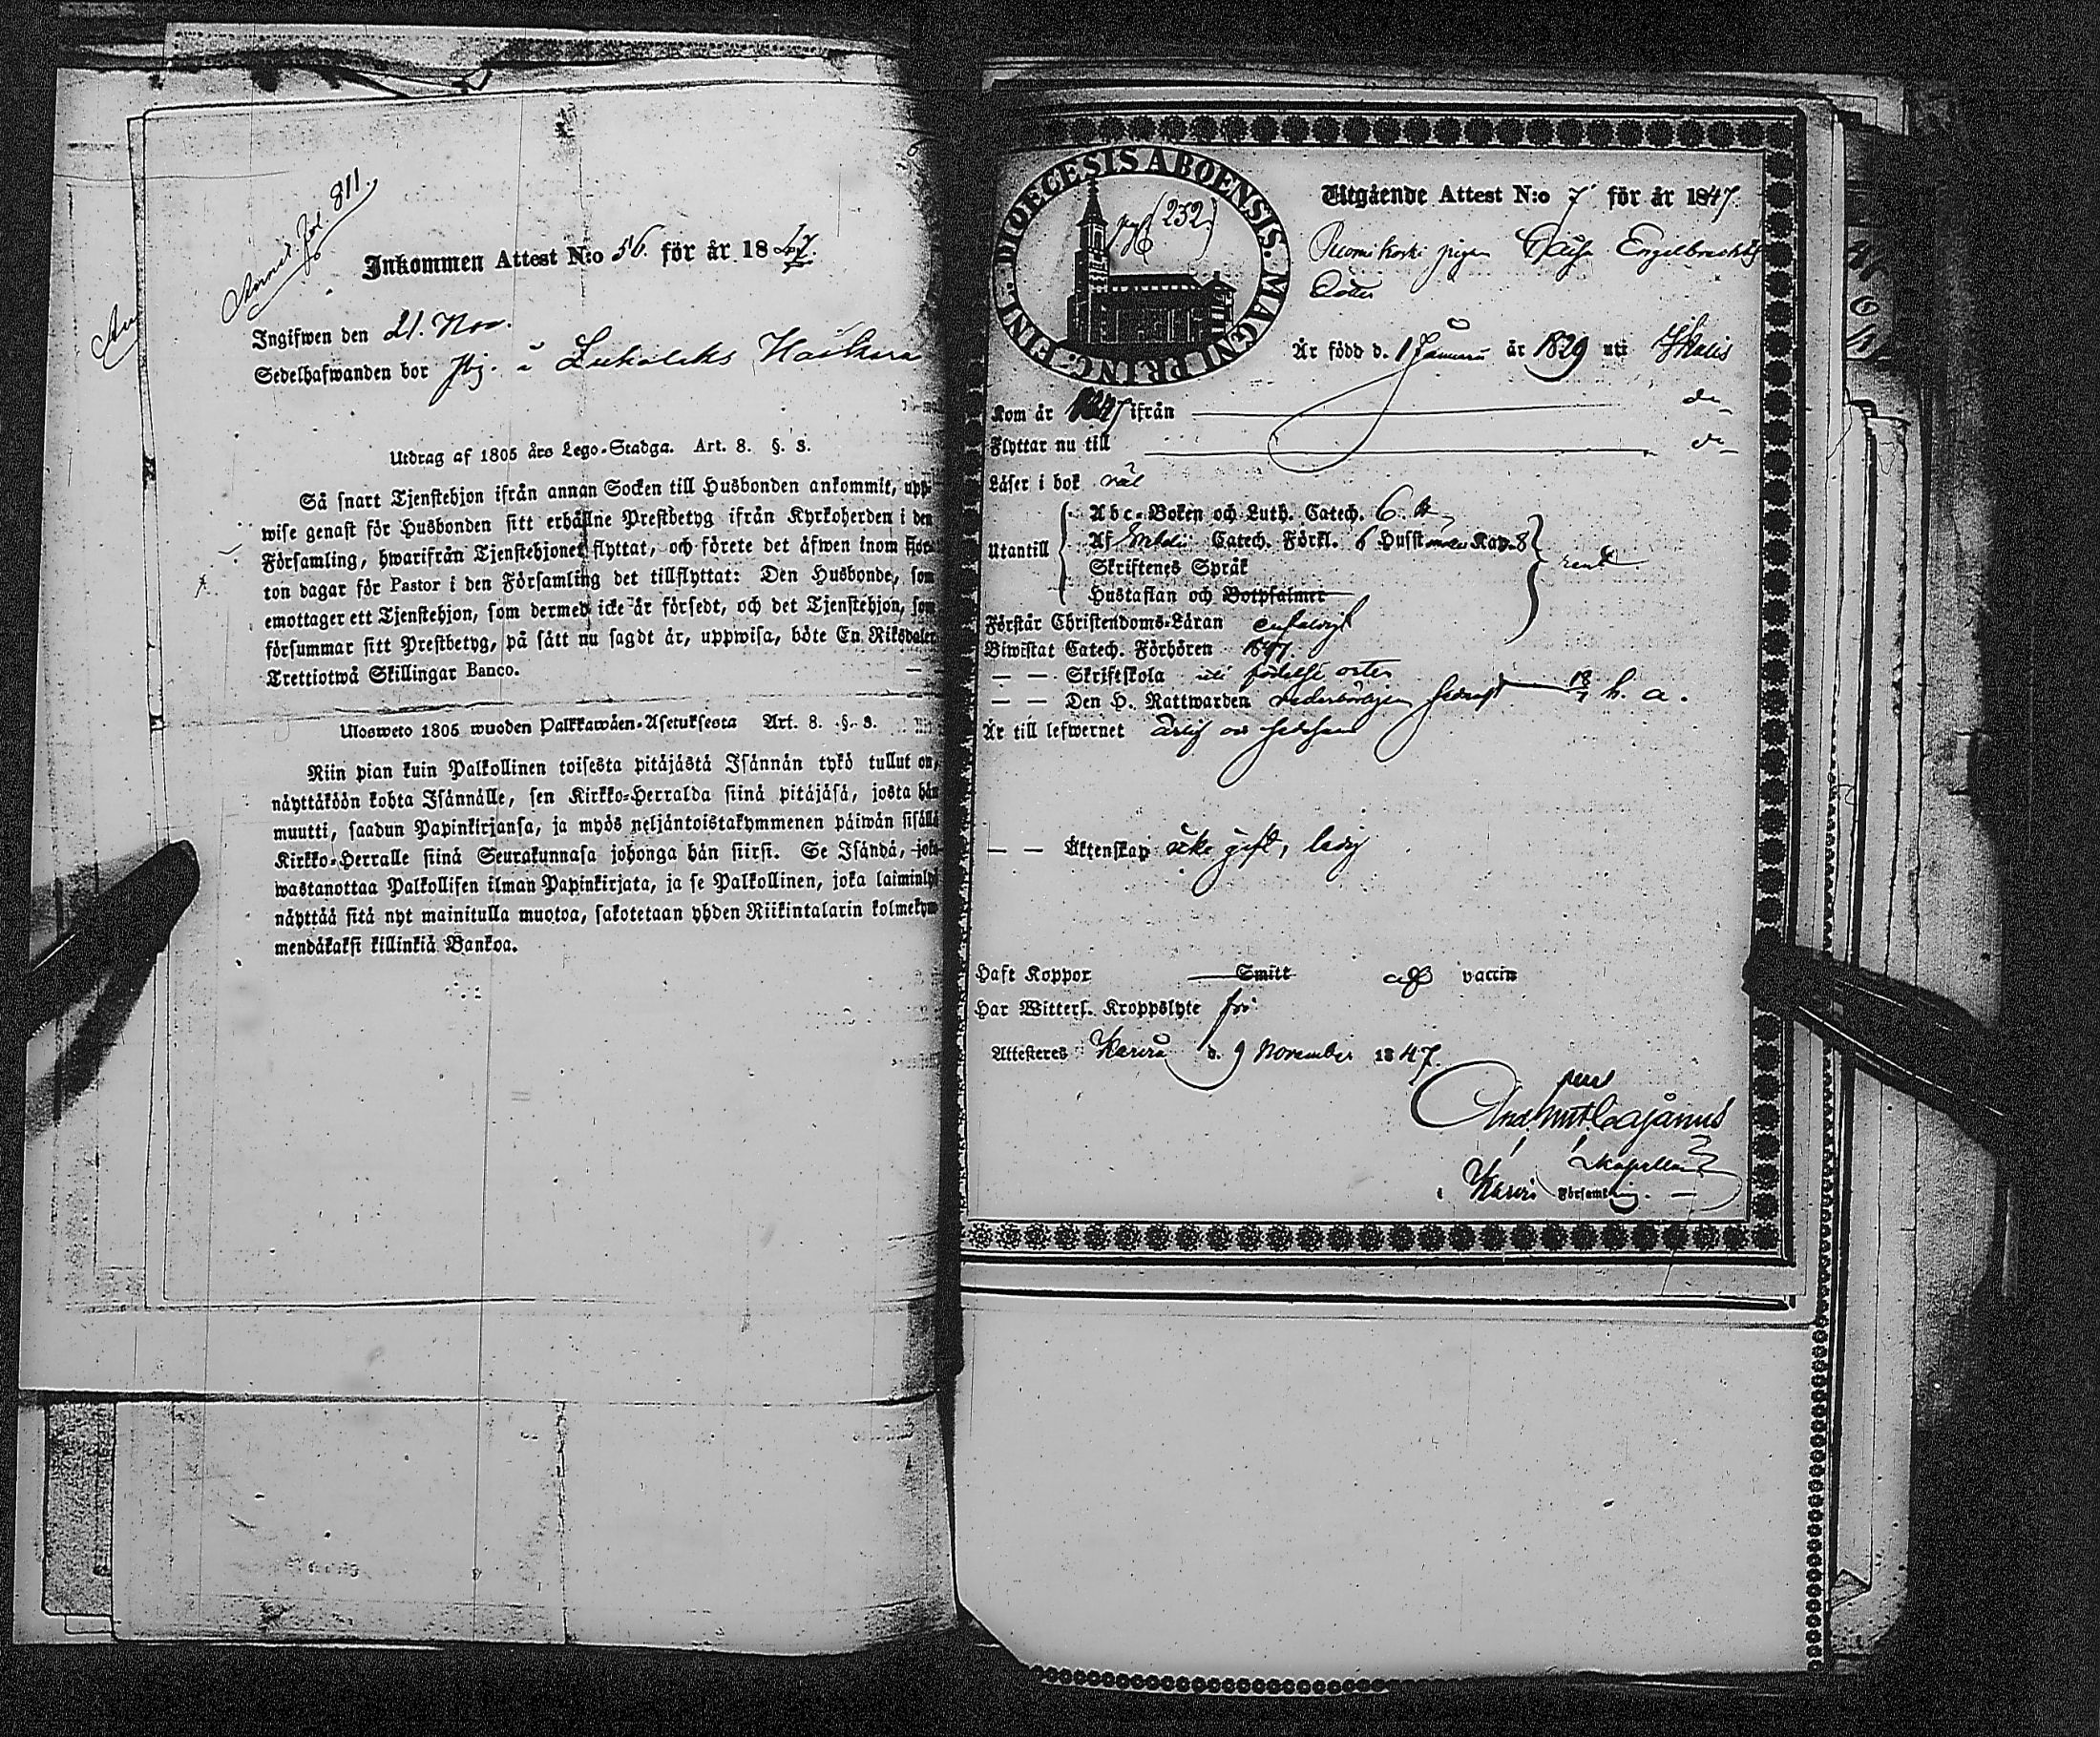 Inkommen Attest N:o 56. för år 1847.
Ingifwen den 21. Nov.
Sedelhafwanden bor
Utdrag af 1805 års Lego-Stadga. Art. 8. §. 3.
Så snart Tjenstehjon ifrån annan Socken till Husbonden ankommit, upp-
wise genast för Husbonden sitt erhållne Prestbetyg ifrån Kyrkoherden i den
Församling, hwarifrån Tjenstehjonet flyttat, och förete det äfwen inom fjor-
ton dagar för Pastor i den Församling det tillflyttat: Den Husbonde, som
emottager ett Tjenstehjon, som dermed icke är försedt, och det Tjenstehjon, som
försummar sitt Prestbetyg, på sätt nu sagdt är, uppwisa, böte En Riksdaler
Trettiotwå Skillingar Banco.
Ulosweto 1805 wuoden Palkkawäen-Asetuksesta Art. 8. §. 3.
Niin pian kuin Palkollinen toisesta pitäjästä Isännän tykö tullut on,
näyttäköön kohta Isännälle, sen Kirkko-Herralda siinä pitäjäsä, josta hän
muutti, saadun Papinkirjansa, ja myös neljäntoistakymmenen päiwän sisällä
Kirkko-Herralle siinä Seurakunnasa johonga hän siirsi. Se Isändä, joka
wastanottaa Palkollisen ilman Papinkirjata, ja se Palkollinen, joka laiminlyö
näyttää sitä nyt mainitulla muotoa, sakotetaan yhden Riikintalarin kolmekym-
mendäkaksi killinkiä Bankoa.
DIOECESIS ABOENSIS. MAGNI PRINC. FINL.
pag 232.
Utgående Attest N:o 7 för år 1847.
Är född d. 1 Januari år 1829 uti Ikalis
Kom år 1847 ifrån do
Flyttar nu till do
Läser i bok väl
Utantill
Abc-Boken och Luth. Catech. 6
Af Catech. Förkl. 6 Hufst Kap. 8
Skriftenes Språk
Hustaflan och Botpsalmer
Förstår Christendoms-Läran enfaldigt
Biwistat Catech. Förhören 1847.
— — Skriftskola uti födelse orten
— — Den H. Nattwarden h. a.
Är till lefwernet ärlig och
— — Äktenskap icke gift, ledig
Haft Koppor Smitt vaccin
Har Witterl. Kroppslyte fri
Attesteras d. 9 November 1847.
Cajanus
Kapellan
i Församling.